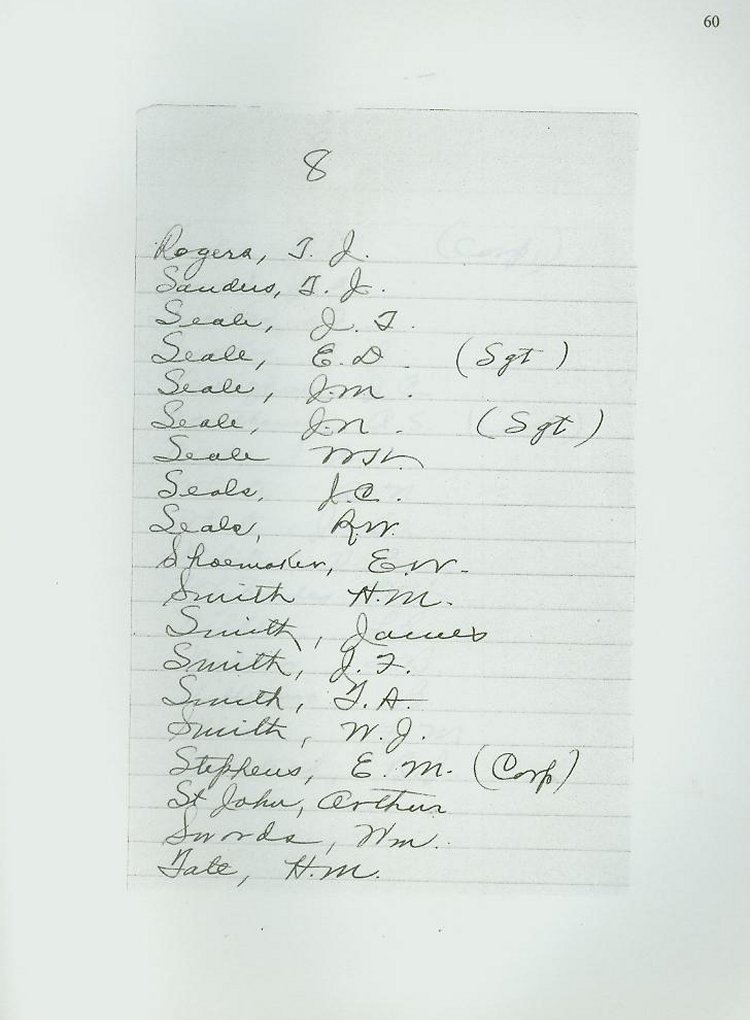 60
8
Rogers, T. J.
Sanders, T. J.
Seale, J. T.
Seale, E. D. (Sgt)
Seale, J. M.
Seale, J. N. (Sgt)
Seale
Seals, J. C.
Seals, R. W.
Shoemaker, E. W.
Smith H. M.
Smith, James
Smith, J. F.
Smith, T. A.
Smith, W. J.
Stephens, E. M. (Corp)
St John, Arthur
Swords, Wm.
Tate, H. M.